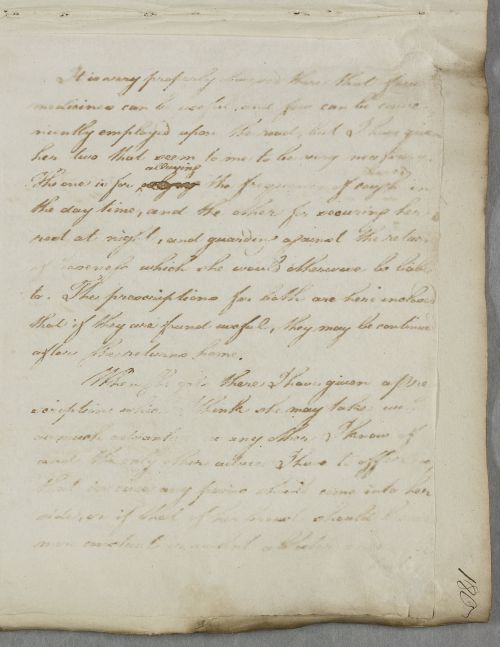 It is very properly observed there that few
medicines can be useful and few can be conve
niently employed upon the road, but I have given
her two that seem to me to be very necessary.
allaying
The one is for the frequency of cough in
the day time, and the other for securing her
rest at night, and guarding against the return
of which she would otherwise be liable
to. The prescriptions for both are here inclosed
that if they are found useful, they may be continued
after she returns home.
When she gets there I have given a pre
scription which I think she may take with
as much advantage as any other I know of
and the only other advice I have to offer is
that in case any pains should come into her
side, or if that of her breast should
more constant
180